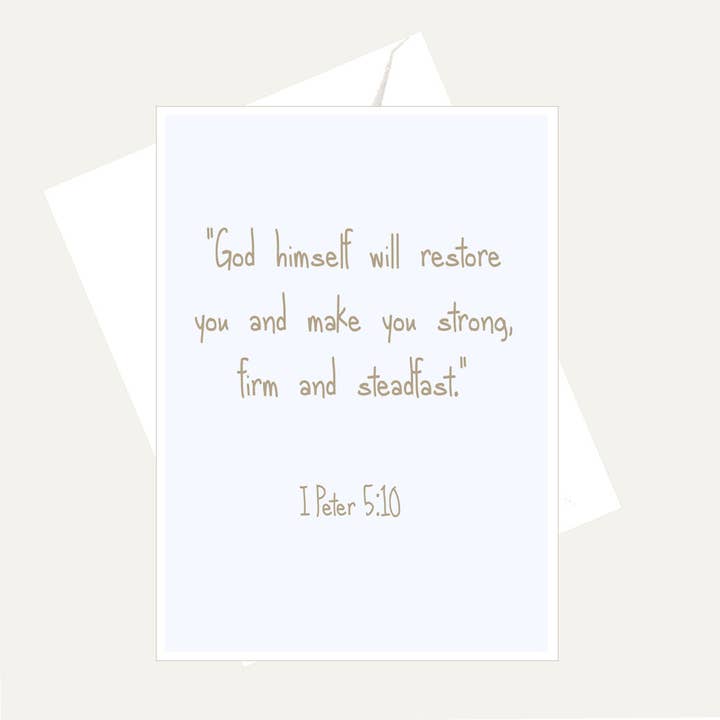 "God himself will restore
you and make you strong,
firm and steadfast."
I Peter 5:10